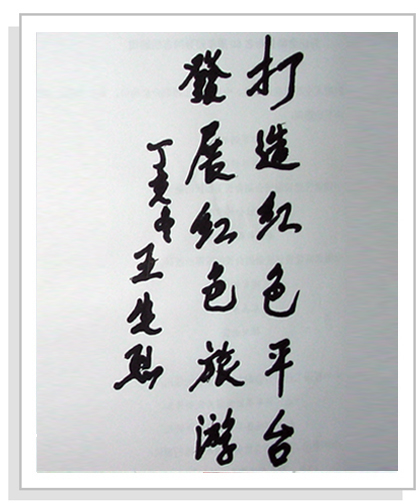 打造红色平台
發展红色旅游
丁亥冬 王